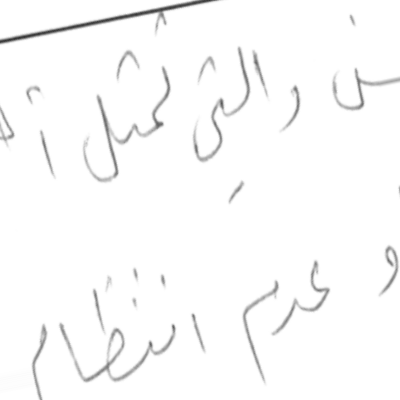 والتي تمثل
و عدم انتظام